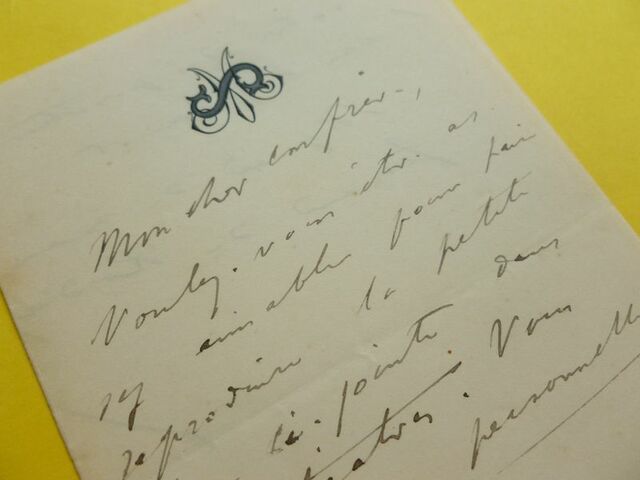 Mon cher confrère,
Voulez-vous être as
sez aimable pour faire
reproduire la petite
ci-jointe dans
Vous
personnelle